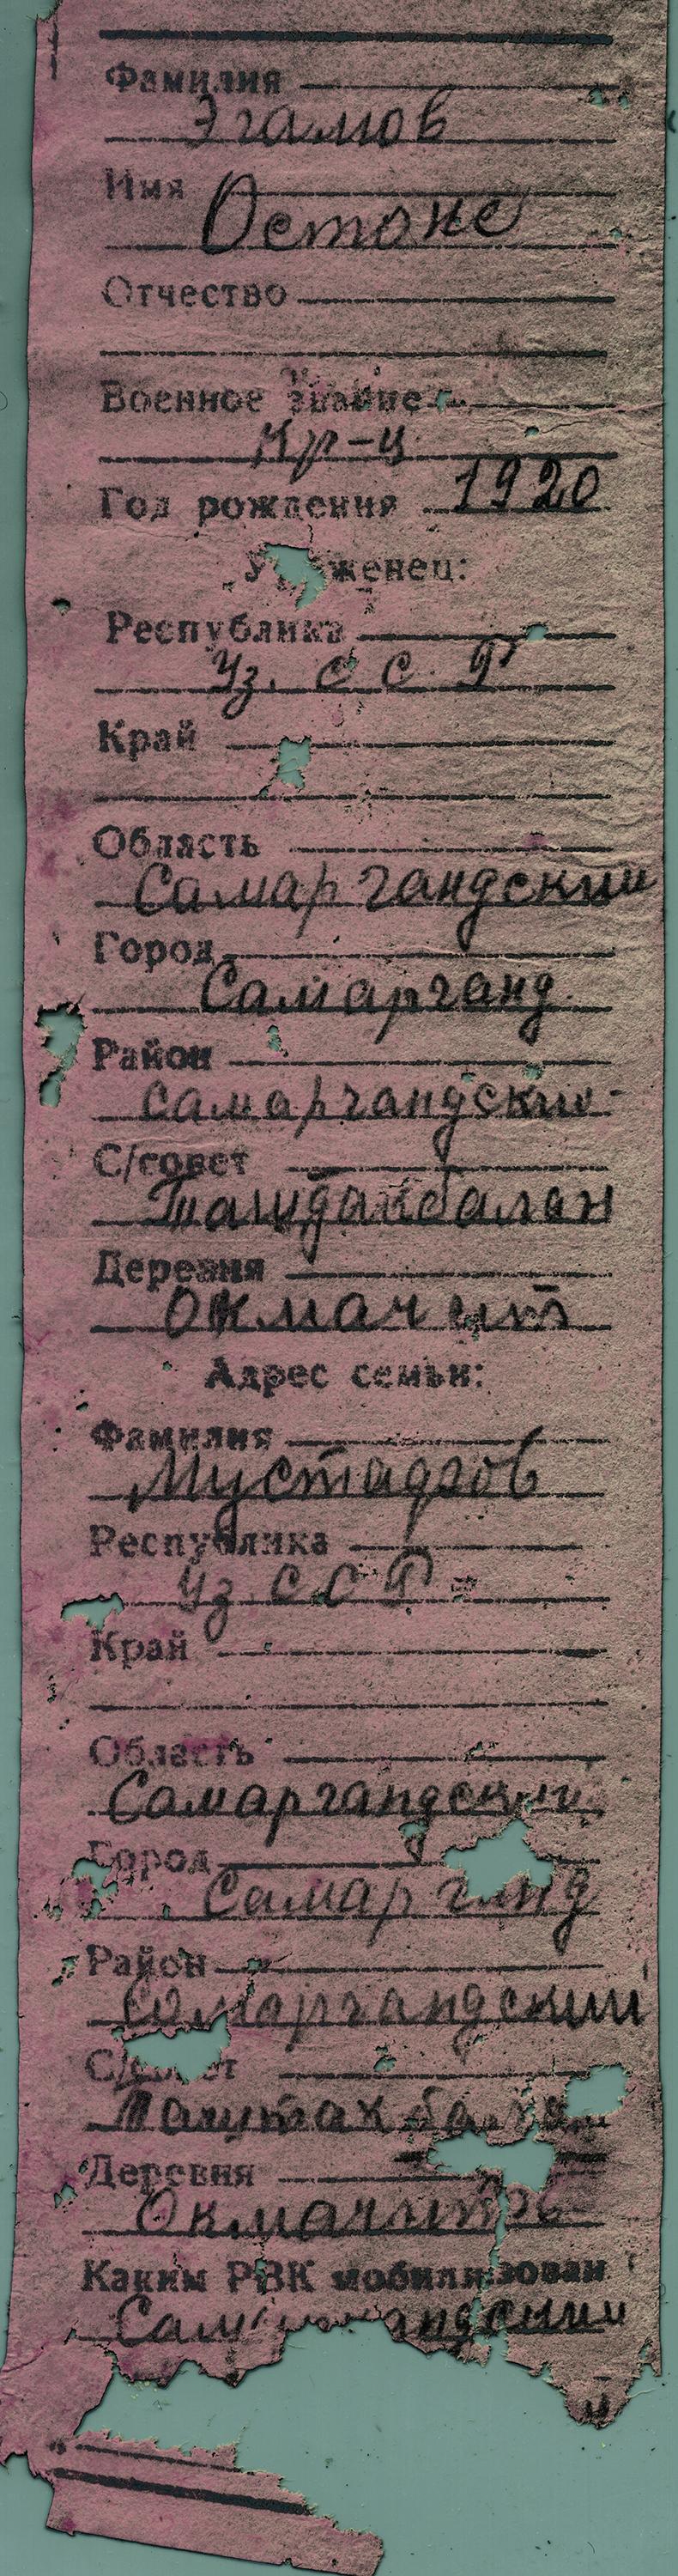 Фамилия
Эгамов
Имя
Остоне
Отчество
Военное звание
Кр-ц
Год рождения 1920
Уроженец:
Республика
Уз. С С Р
Край
Область
Самаргандский
Город
Самарганд
Район
Самаргандский
С/совет
Деревня
Окмачит
Адрес семьи:
Фамилия
Республика
Уз. С С Р
Край
Область
Самаргандский
Город
Самарганд
Район
Самаргандский
С/совет
Деревня
Каким РВК мобилизован